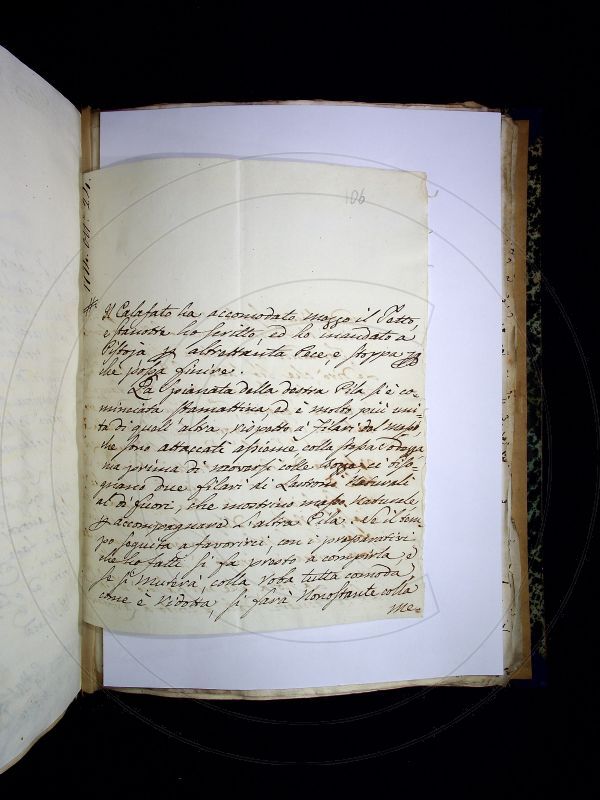 106
Il Calafato ha accomodato mezzo il Tetto,
e stanotte ho scritto, ed ho mandato a
Pistoja altrettanta Pece, e stoppa
che possa finire.
La spianata della destra Pila si è co-
minciata stamattina, ed è molto più uni-
ta di quell'altra rispetto a' Filari del masso,
che sono attaccati assieme colla stessa
ma prima di muoversi colle ci biso-
gnano due filari di Lastroni Naturali
al di fuori, che mostrino masso naturale
accompagnare l'altra Pila. Se il tem-
po seguita a favorirci, con i preparativi
che ho fatti si fa presto a compirla, e
se si muterà, colla roba tutta comoda
come è ridotta, si farà Nonostante colla
me-